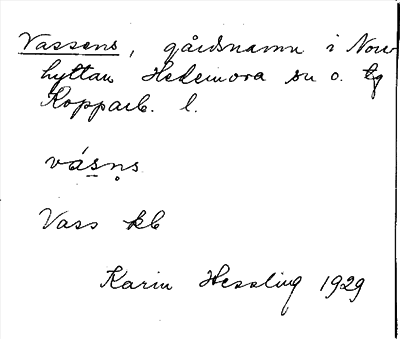 Vassens, gårdsnamn i Norr
hyttan Hedemora sn o. tg
Kopparb. l.
vásṇs
Vass kb
Karin Hessling 1929